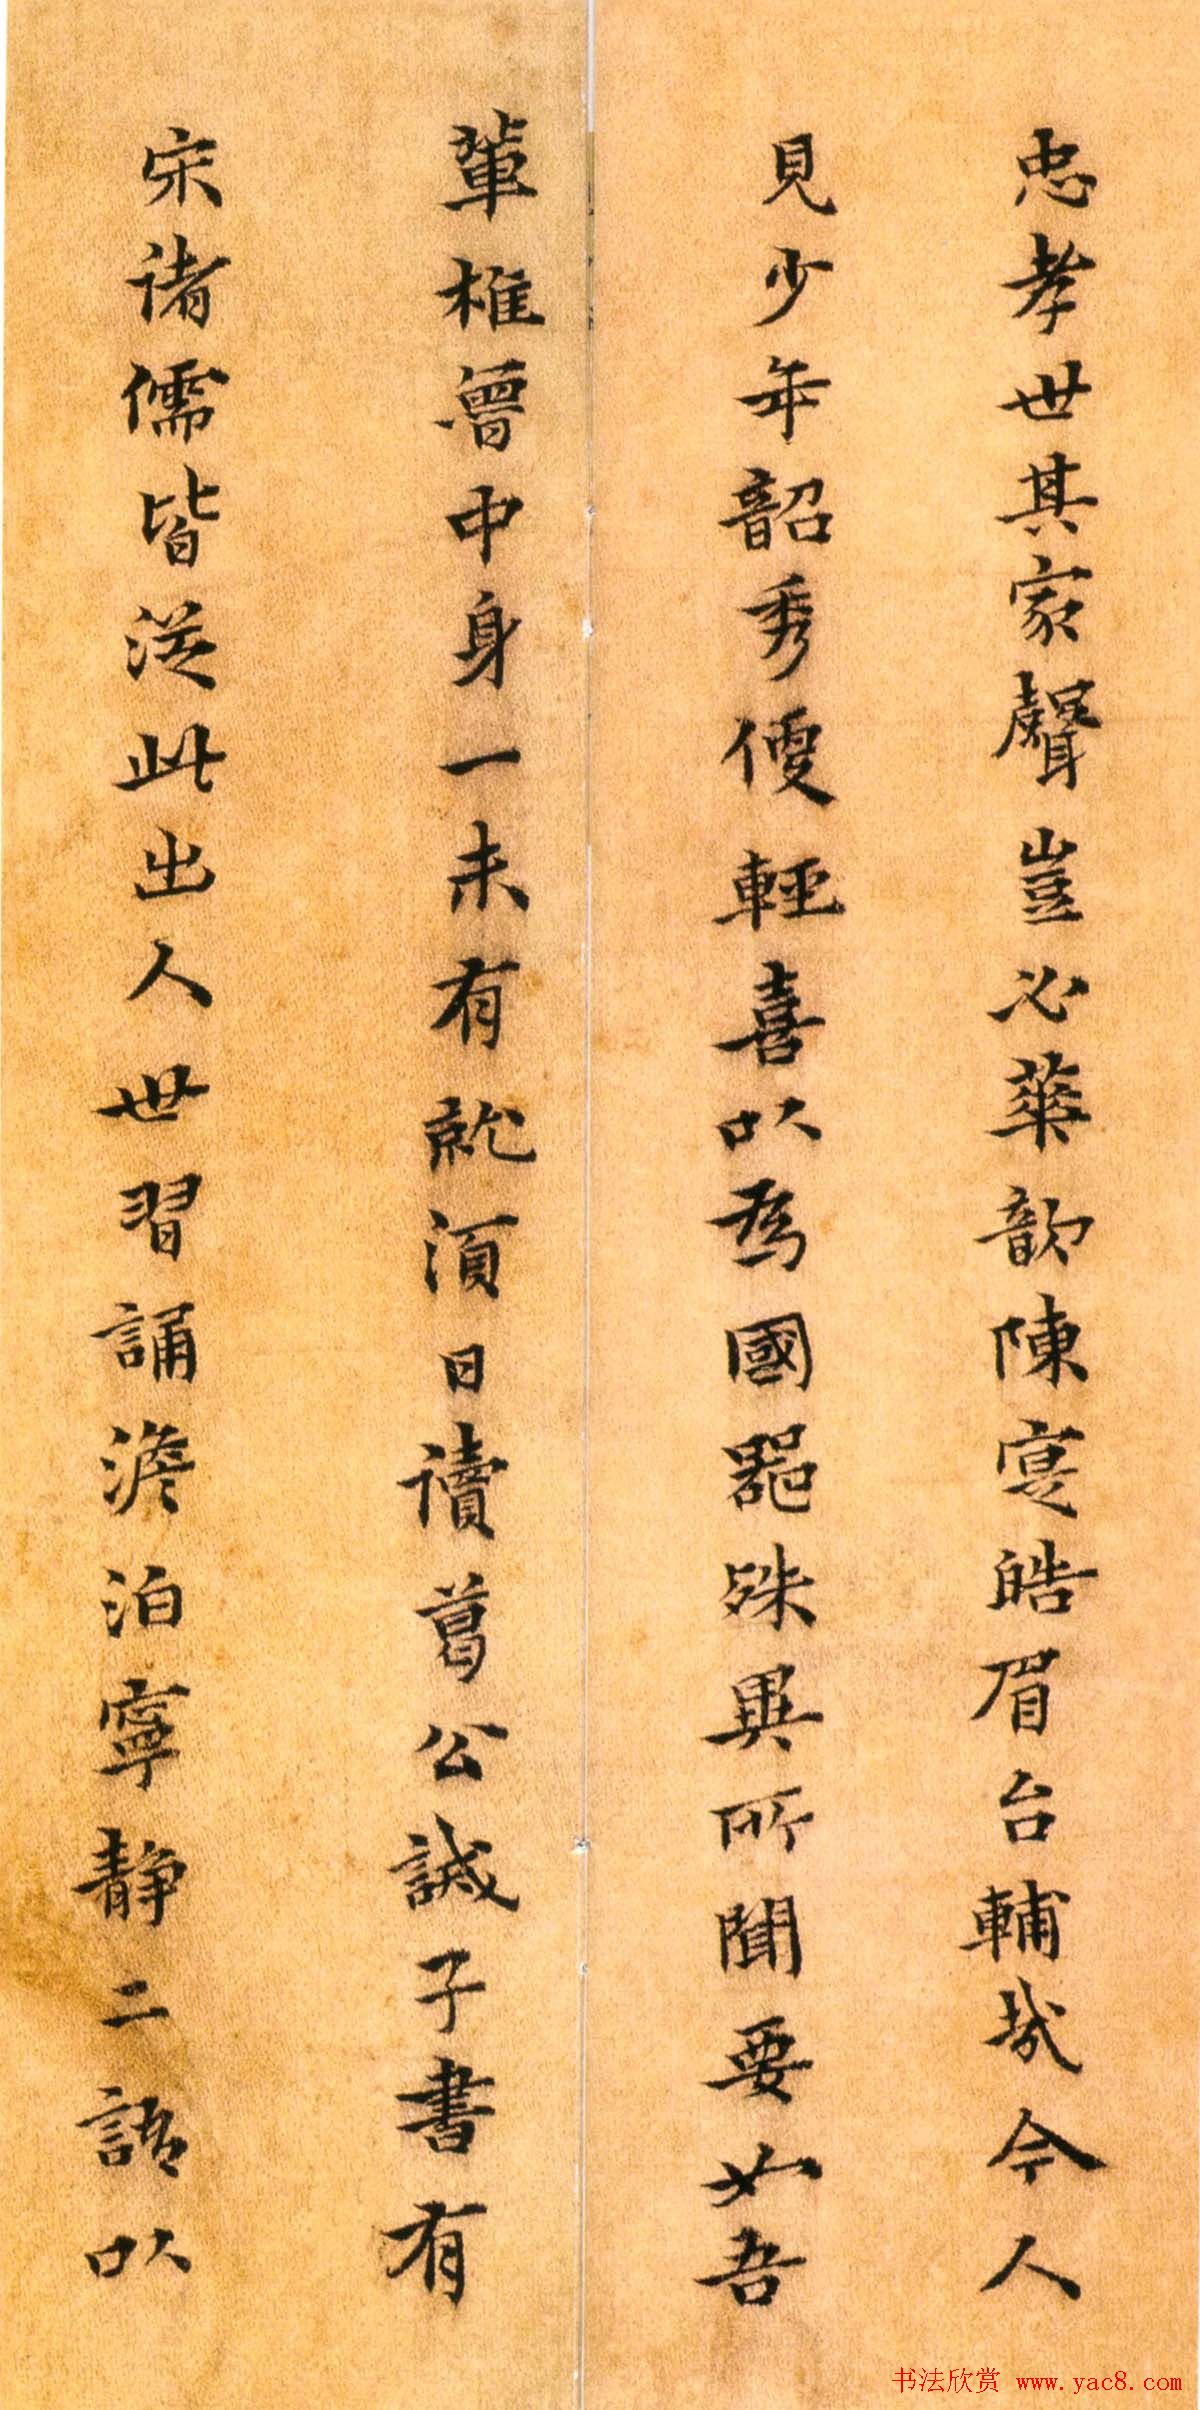 忠孝世其家聲豈必華歆陳寔皓眉台輔哉今人
見少年韶秀便輕喜以為國器殊異所聞要如吾
輩椎魯中身一未有就須日讀葛公誡子書有
宋诸儒皆從此出人世習誦澹泊寧静二語以
书法欣赏 www.yac8.com